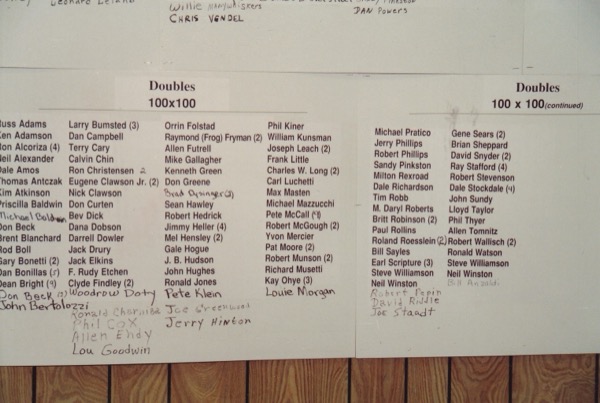 Leonard Leland
Willie Manywhiskers
CHRIS VENDEL
DAN Powers
Doubles
100x100
Russ Adams
Ken Adamson
Ron Alcoriza (4)
Neil Alexander
Dale Amos
Thomas Antczak
Kim Atkinson
Priscilla Baldwin
Michael Boldman
Don Beck
Brent Blanchard
Rod Boll
Gary Bonetti (2)
Dan Bonillas
Dean Bright
Don Beck
John Bertolozzi
Larry Bumsted (3)
Dan Campbell
Terry Cary
Calvin Chin
Ron Christensen 2
Eugene Clawson Jr. (2)
Nick Clawson
Don Curten
Bev Dick
Dana Dobson
Darrell Dowler
Jack Drury
Jack Elkins
F. Rudy Etchen
Clyde Findley (2)
Woodrow Doty
Ronald
Phil Cox
Allen Endy
Lou Goodwin
Orrin Folstad
Raymond (Frog) Fryman (2)
Allen Futrell
Mike Gallagher
Kenneth Green
Don Greene
Sean Hawley
Robert Hedrick
Jimmy Heller (4)
Mel Hensley (2)
Gale Hogue
J. B. Hudson
John Hughes
Ronald Jones
Pete Klein
Joe Greenwood
Jerry Hinton
Phil Kiner
William Kunsman
Joseph Leach (2)
Frank Little
Charles W. Long (2)
Carl Luchetti
Max Masten
Michael Mazzucchi
Pete McCall
Robert McGough (2)
Yvon Mercier
Pat Moore (2)
Robert Munson (2)
Richard Musetti
Kay Ohye (3)
Louie Morgan
Doubles
100 x 100 (continued)
Michael Pratico
Jerry Phillips
Robert Phillips
Sandy Pinkston
Milton Rexroad
Dale Richardson
Tim Robb
M. Daryl Roberts
Britt Robinson (2)
Paul Rollins
Roland Roesslein (2)
Bill Sayles
Earl Scripture (3)
Steve Williamson
Neil Winston
Robert Pepin
David Riddle
Joe Staadt
Gene Sears (2)
Brian Sheppard
David Snyder (2)
Ray Stafford (4)
Robert Stevenson
Dale Stockdale
John Sundy
Lloyd Taylor
Phil Thyer
Allen Tomnitz
Robert Wallisch (2)
Ronald Watson
Steve Williamson
Neil Winston
Bill